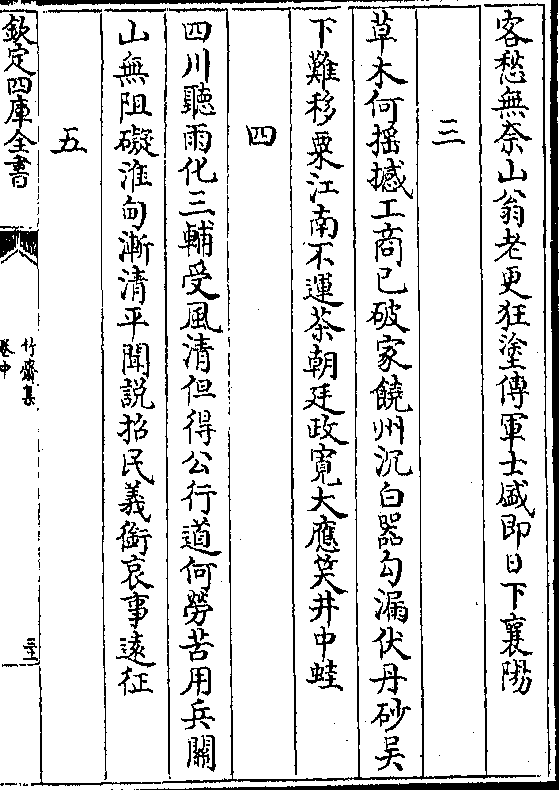 客愁無奈山翁老更狂塗傳軍士感即日下襄陽
三
草木何搖撼工商已破家饒州沉白器勾漏伏丹砂吴
下難移粟江南不運茶朝廷政寛大應笑井中蛙
四
四川聽雨化三輔受風清但得公行道何勞苦用兵關
山無阻礙淮甸漸清平聞説招民義銜哀事遠征
五
欽定四庫全書
竹齋集
卷中